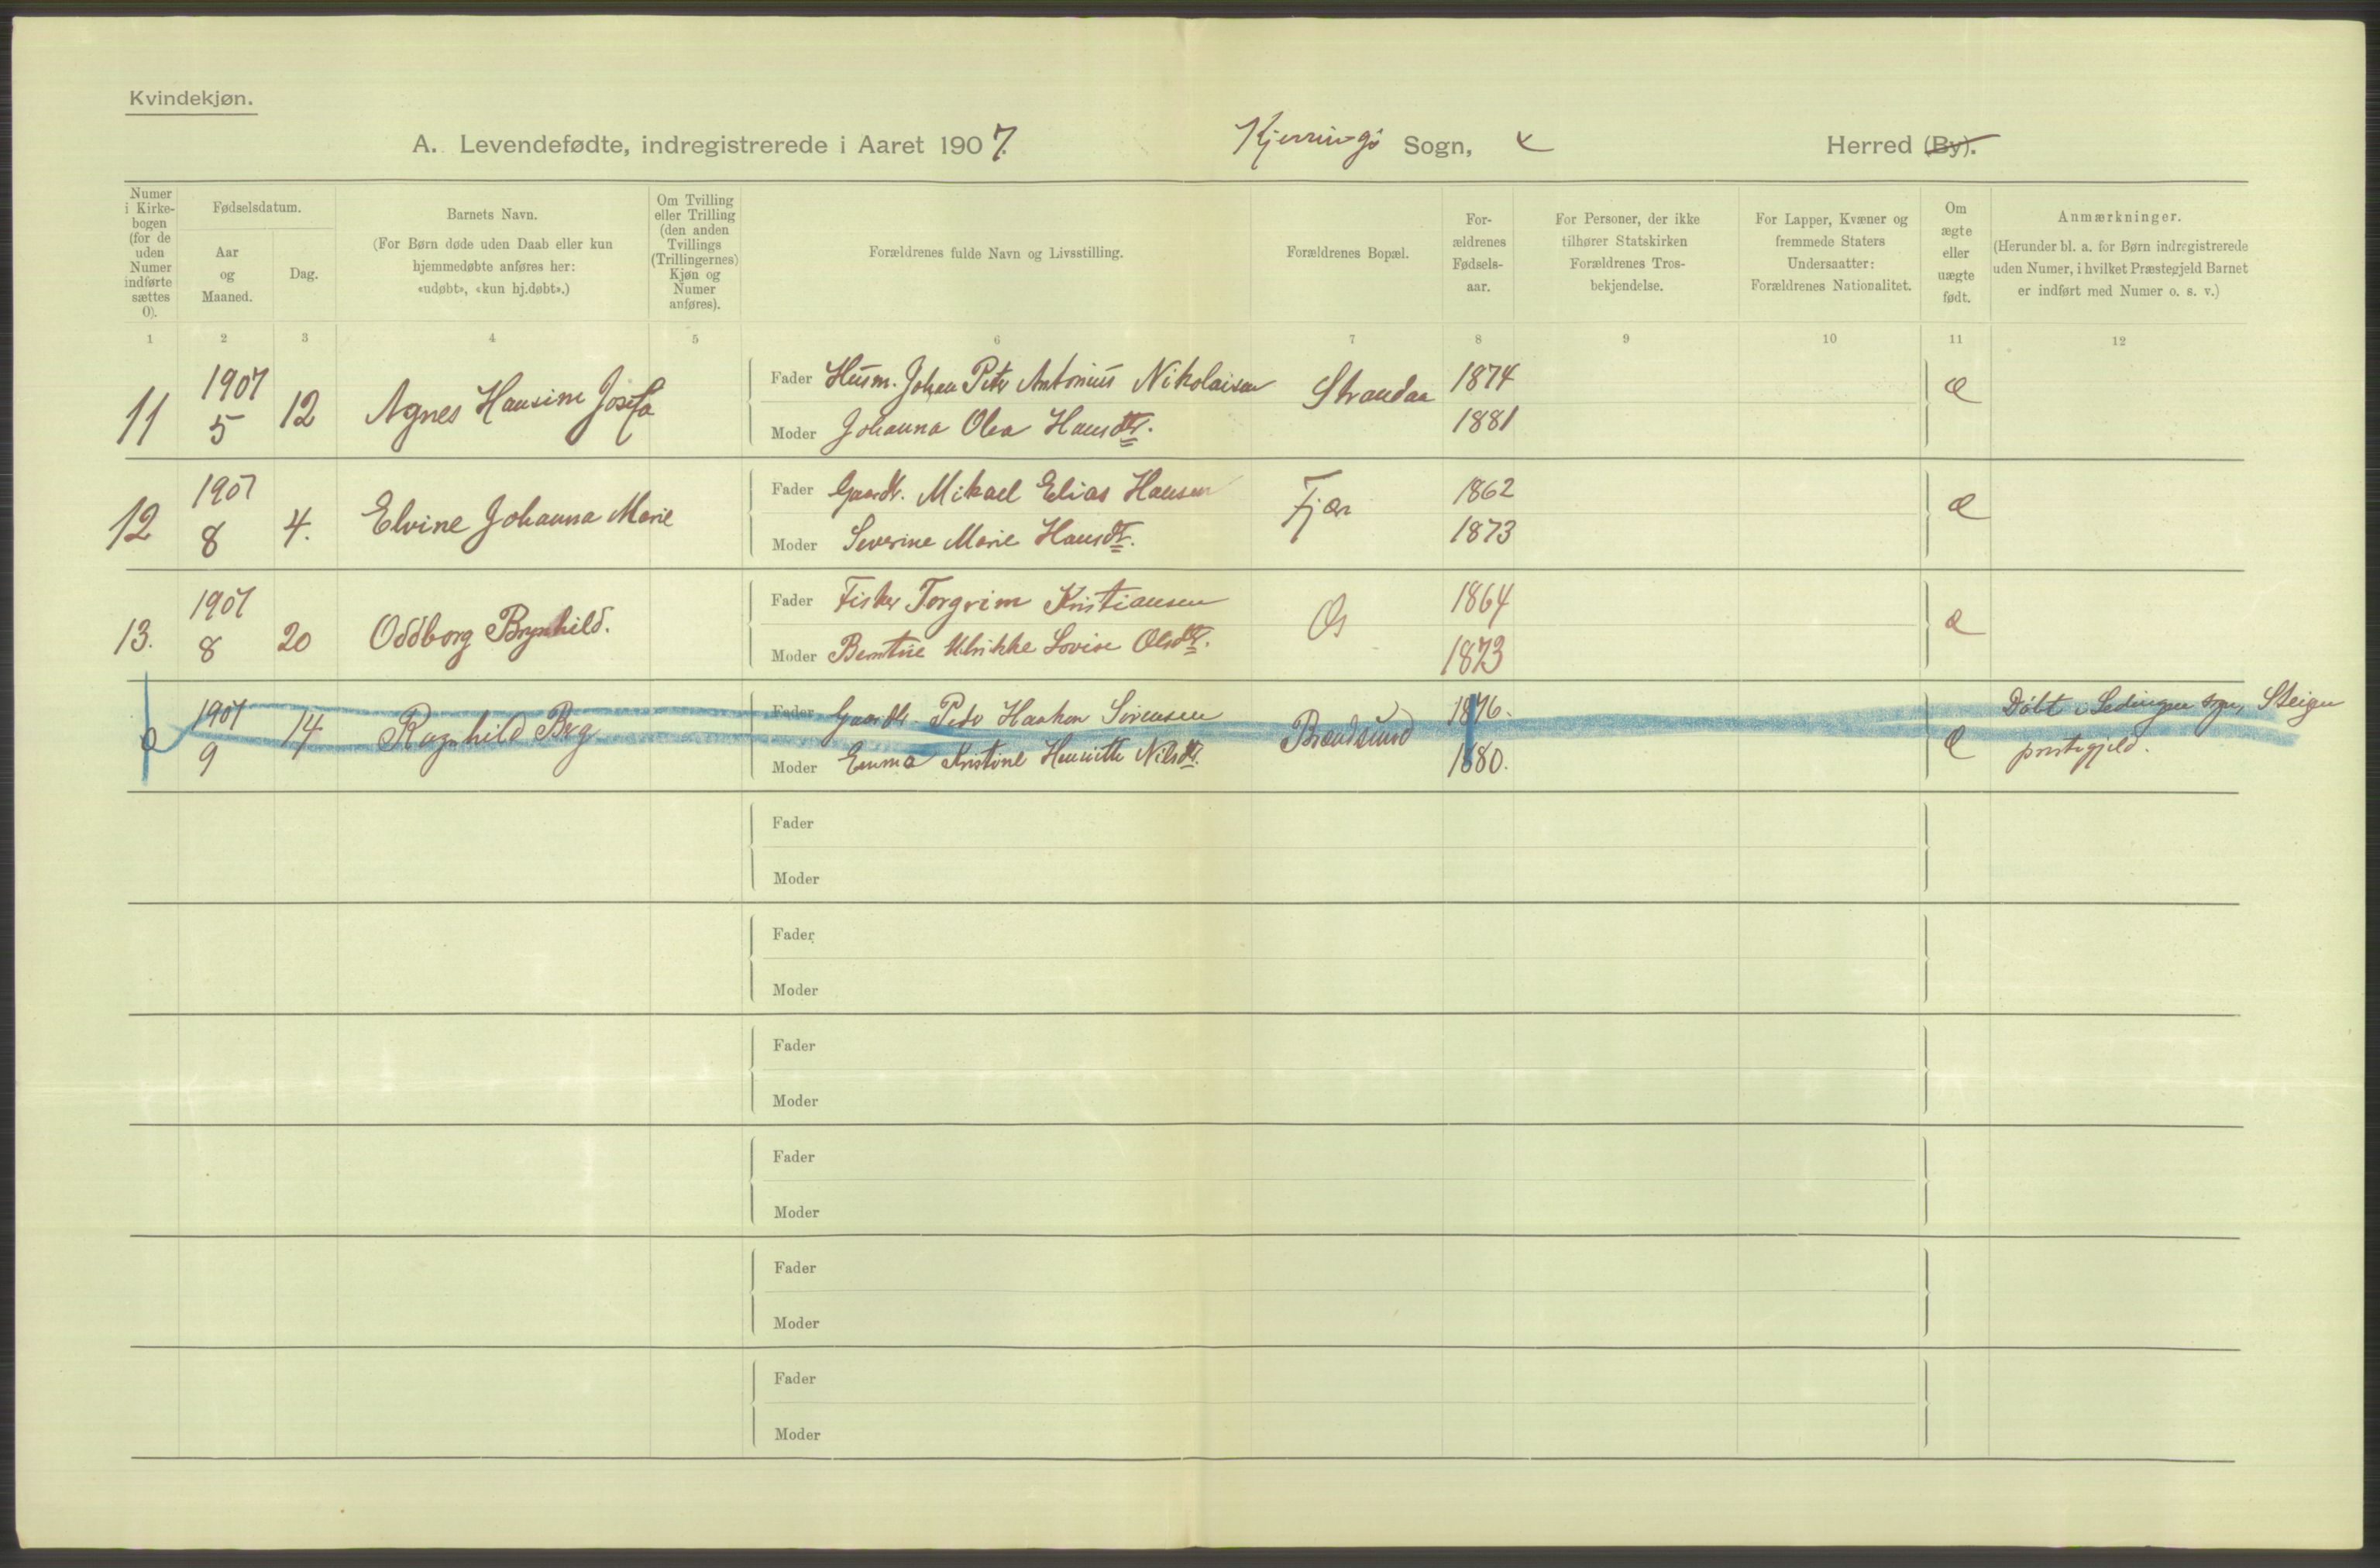 Kvindekjøn.
A. Levendefødte, indregistrerede i Aaret 1907. Kjerringö Sogn, Herred (By).
Numer i Kirke-bogen (for de uden Numer indførte sættes O).
Fødselsdatum.
Aar og Maaned.
Dag.
Barnets Navn.
(For Børn døde uden Daab eller kun
hjemmedøbte anføres her:
«udøbt», «kun hj.døbt».)
Om Tvilling
eller Trilling
(den anden
Tvillings
(Trillingernes)
Kjøn og
Numer
anføres).
Forældrenes fulde Navn og Livsstilling.
Forældrenes Bopæl.
For-
ældrenes
Fødsels-
aar.
For Personer, der ikke
tilhører Statskirken
Forældrenes Tros-
bekjendelse.
For Lapper, Kvæner og
fremmede Staters
Undersaatter:
Forældrenes Nationalitet.
Om
ægte
eller
uægte
født.
Anmærkninger.
(Herunder bl. a. for Børn indregistrerede
uden Numer, i hvilket Præstegjeld Barnet
er indført med Numer o. s. v.)
1 2 3 4 5 6 7 8 9 10 11 12
11 1907 5 12 Agnes Hansine Josefa
Fader Husm. Johan Peter Antonius Nikolaisen Strandaa 1874 æ
Moder Johanna Olea Hansdtr. 1881
12 1907 8 4. Elvine Johanna Marie
Fader Gaardbr. Mikael Elias Hansen Fjær 1862 æ
Moder Severine Marie Hansdtr. 1873
13. 1907 8 20 Oddborg Brynhild.
Fader Fisker Torgrim Kristiansen Os 1864 æ
Moder Berntine Ulrikke Lovise Olsdtr. 1873
o 1907 9 14 Ragnhild Berg
Fader Gaardbr. Peder Haakon Sörensen Brændsund 1876. æ Döbt i Ledingen sogn, Steigen
Moder Emma Kristine Henriette Nilsdtr. 1880. prestegjeld.
Fader
Moder
Fader
Moder
Fader
Moder
Fader
Moder
Fader
Moder
Fader
Moder